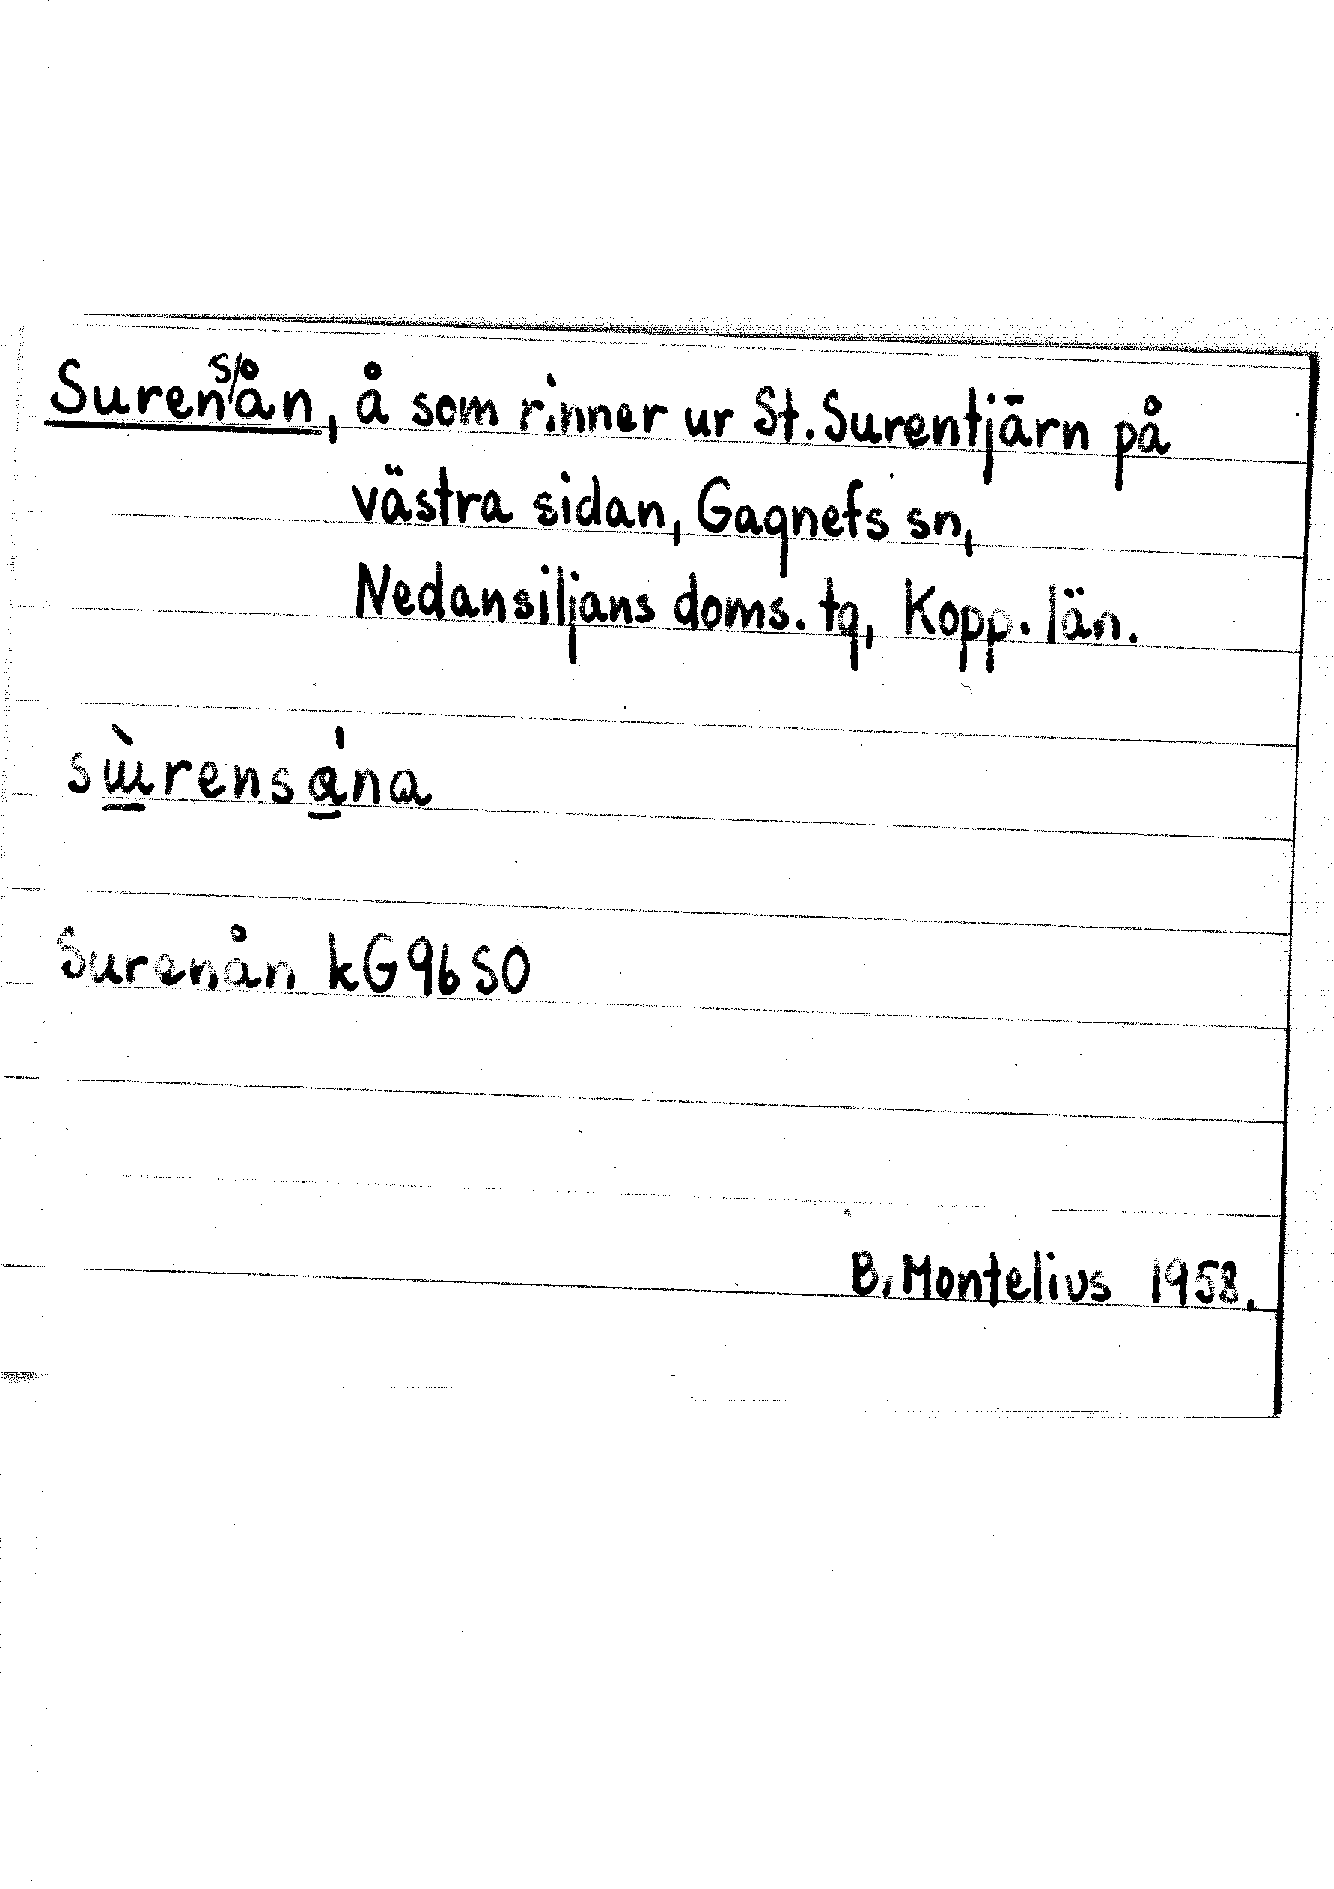 Surensån, å som rinner ur St. Surentjärn på
västra sidan, Gagnefs sn,
Nedansiljans doms. tg, Kopp. län.
sɯ̀rensána
Surenån kG9b SO
B. Montelius 1958.